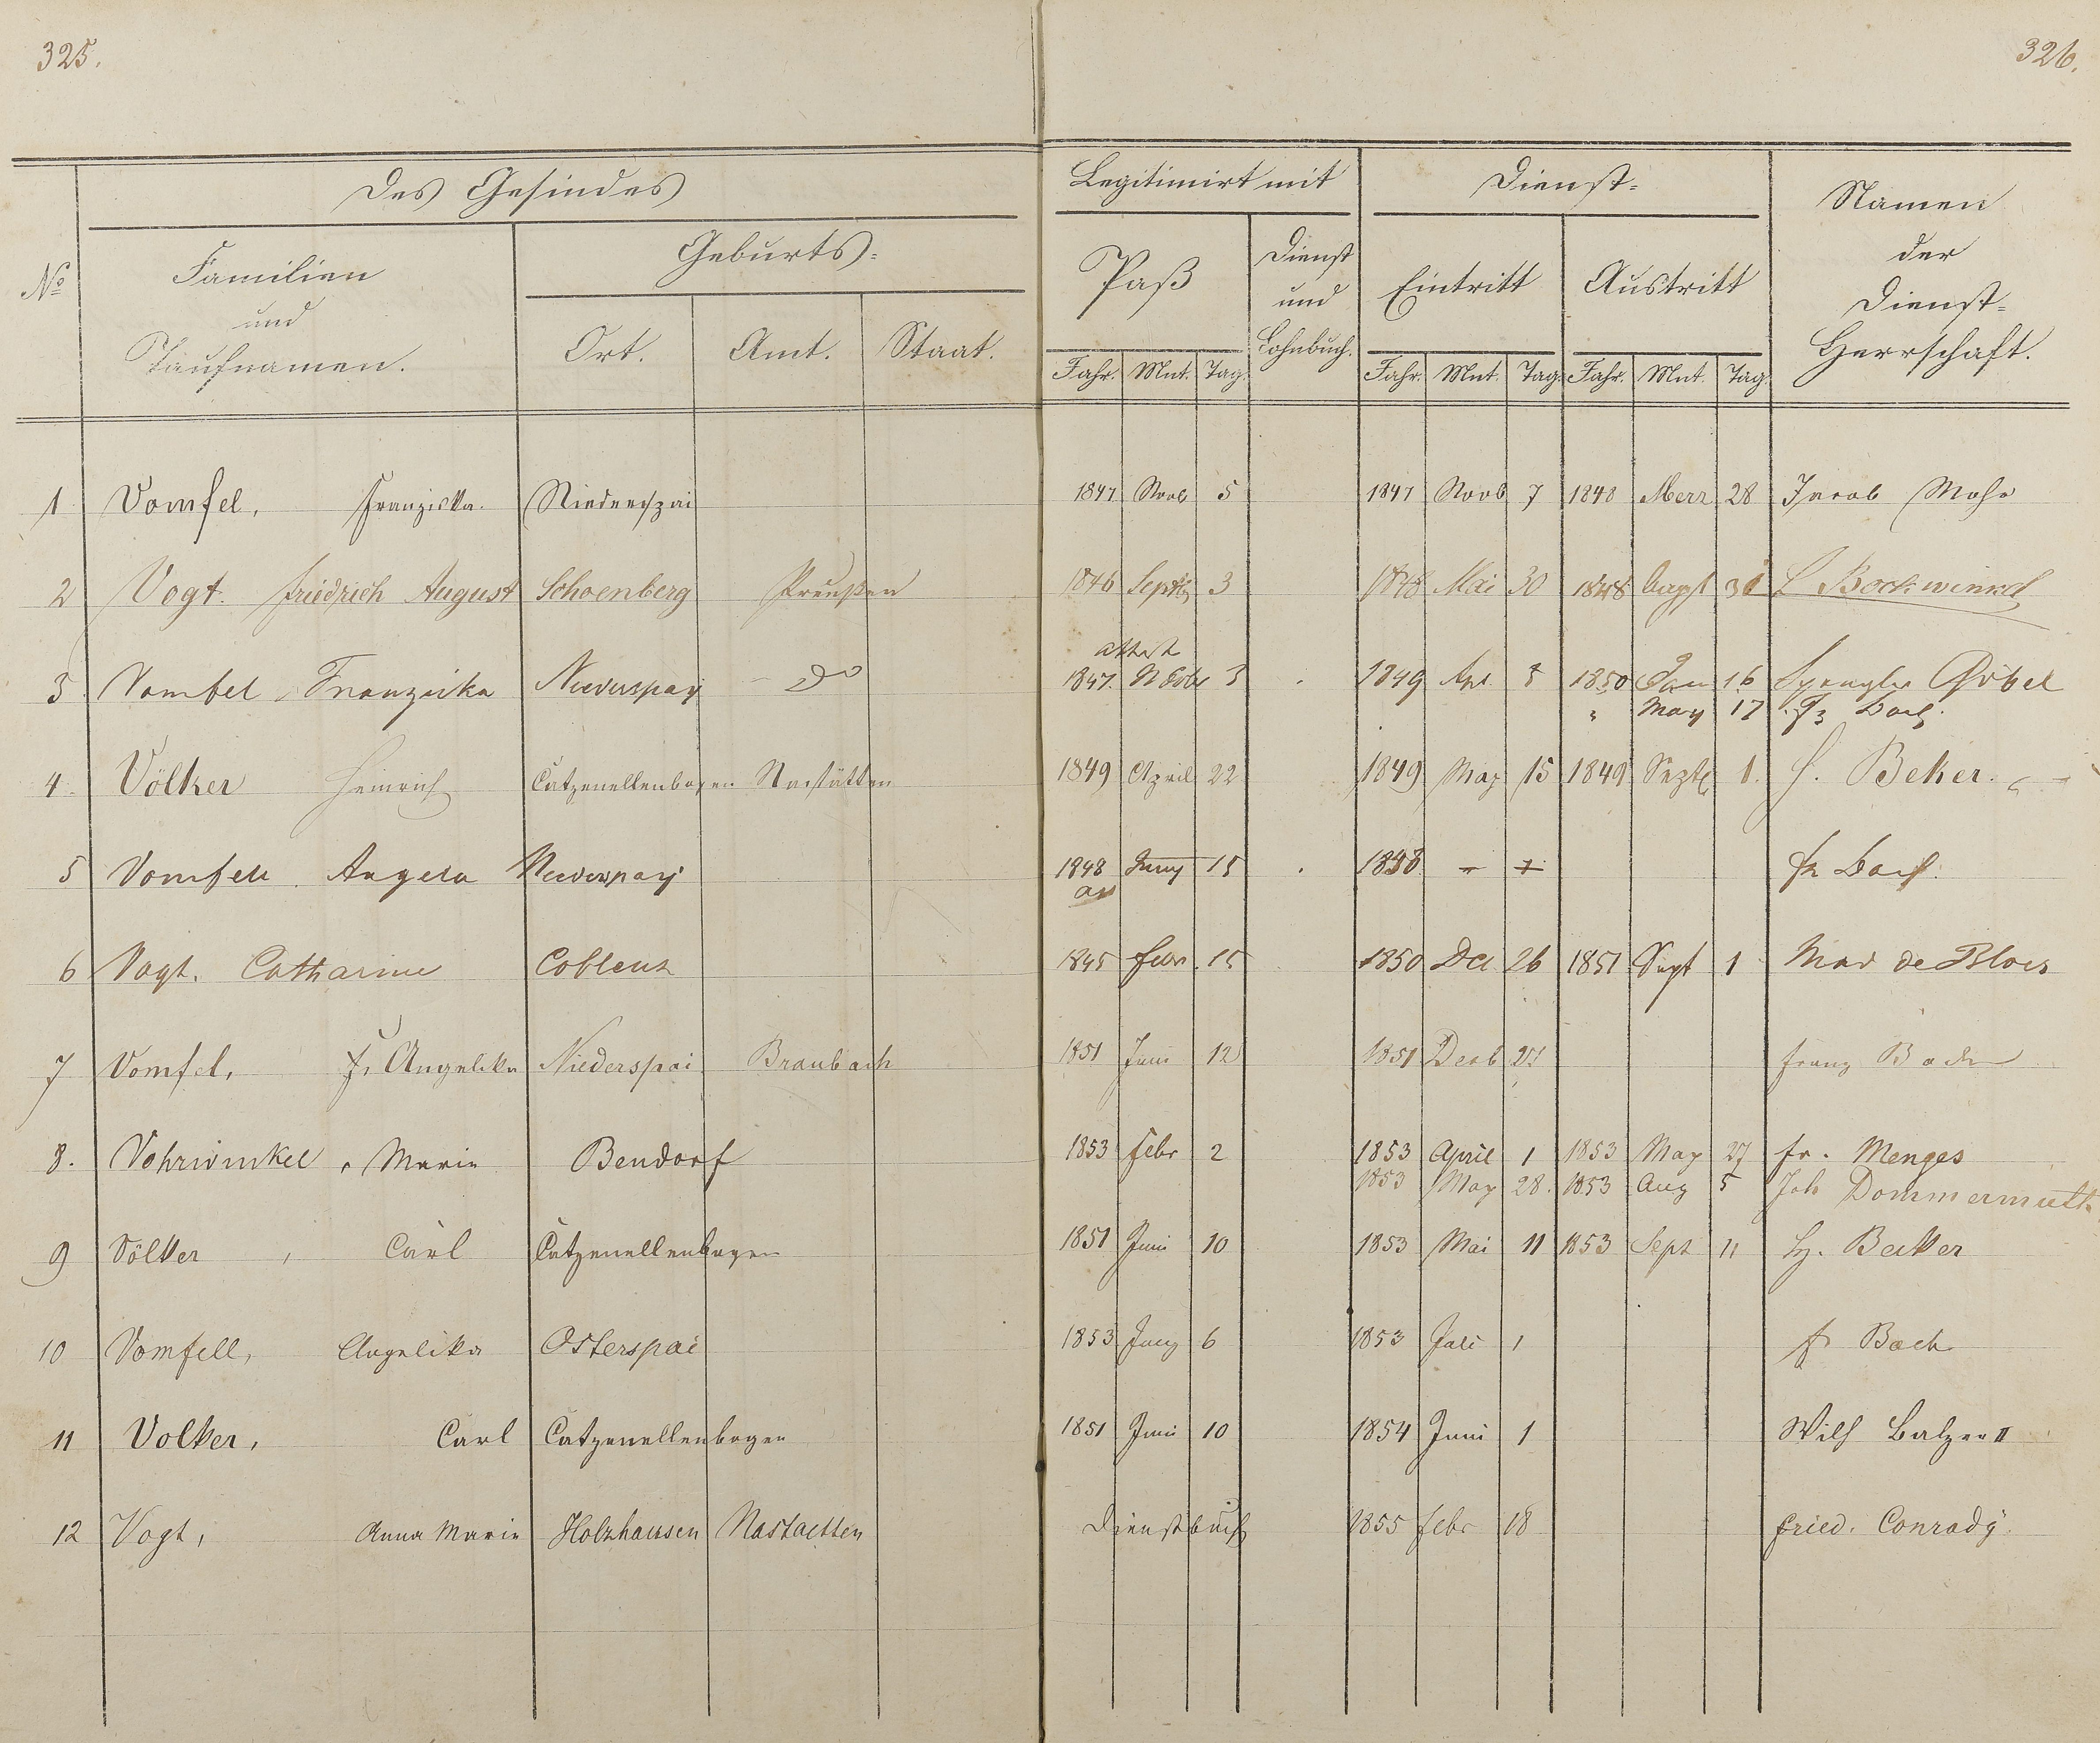 325.
326.
Des Gesindes
Legitimirt mit
Dienst-
Namen der Dienst-Herrschaft.
No
Familien und Taufnamen.
Geburts-
Ort. Amt. Staat.
Paß
Dienst und Lohnbuch.
Eintritt
Austritt
Jahr. Mnt. Tag.
Jahr. Mnt. Tag. Jahr. Mnt. Tag.
1 Vomfel, Franziska. Niederspai 1847 Novb 5 1847 Novb 7 1848 Merz 28 Jacob Mohr
2 Vogt. Friedrich August Schoenberg Preußen 1846 Septb 3 1848 Mai 30 1848 Augst L Bockwinkel
attest
3. Vomfel Franziska Niederspay Do 1847. 1849 Apl. 1850 Jan 16 Spengler Göbel
" May 17 Fz Bach
4. Völker Heinrich Catzenellenbogen Nastätten 1849 April 22 1849 May 15 1849 Septb 1. H. Beker.
5 Vomfell Angela Niederspay 1848 Juny 15 Fr Bach.
6 Vogt. Catharine Coblenz 1845 Febr. 15 1850 Dec 26 1851 Sept 1 Mad de Blois
7 Vomfel, Angelika Niederspai Braubach 1851 Juni 12 1851 Decb 27 Franz Bach
8. Vohrwinkel, Marie Bendorf 1853 Febr 2 1853 April 1 1853 May 27 Fr. Menges
1853 May 28. 1853 Aug 5 Joh Dommermuth
9 Völker, Carl Catzenellenbogen 1851 Juni 10 1853 Mai 11 1853 Sept 11 H. Becker
10 Vomfell, Angelika Osterspai 1853 Juny 6 1853 Juli 1 Fr Bach
11 Volker, Carl Catzenellenbogen 1851 Juni 10 1854 Juni 1 Wilh Balzer II
12 Vogt, Anna Marie Holzhausen Nastaetten Dienstbuch 1855 Febr 18 Fried. Conrady.